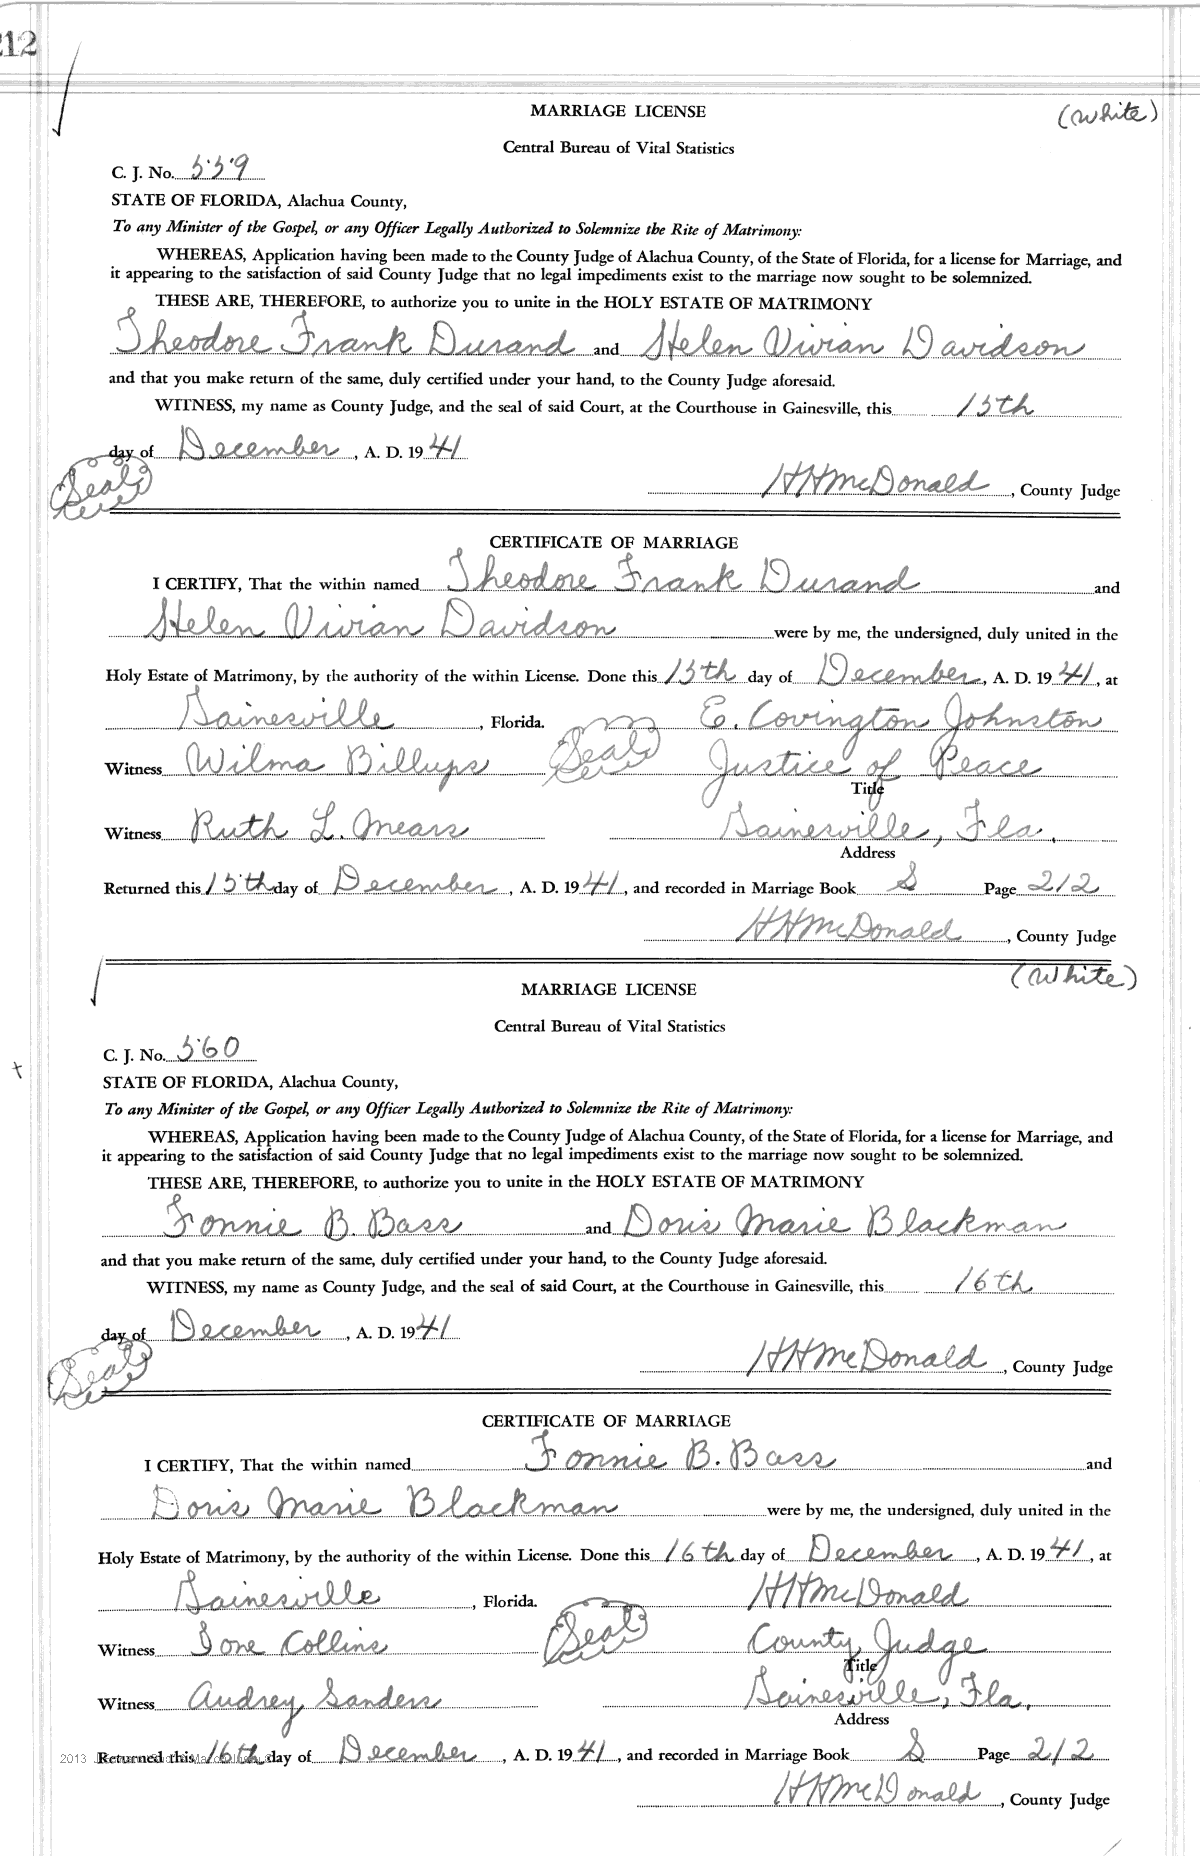 212
MARRIAGE LICENSE (White)
Central Bureau of Vital Statistics
C. J. No. 559
STATE OF FLORIDA, Alachua County,
To any Minister of the Gospel, or any Officer Legally Authorized to Solemnize the Rite of Matrimony:
WHEREAS, Application having been made to the County Judge of Alachua County, of the State of Florida, for a license for Marriage, and
it appearing to the satisfaction of said County Judge that no legal impediments exist to the marriage now sought to be solemnized.
THESE ARE, THEREFORE, to authorize you to unite in the HOLY ESTATE OF MATRIMONY
Theodore Frank Durand and Helen Vivian Davidson
and that you make return of the same, duly certified under your hand, to the County Judge aforesaid.
WITNESS, my name as County Judge, and the seal of said Court, at the Courthouse in Gainesville, this 15th
day of December, A. D. 1941
Seal HHMcDonald, County Judge
CERTIFICATE OF MARRIAGE
I CERTIFY, That the within named Theodore Frank Durand and
Helen Vivian Davidson were by me, the undersigned, duly united in the
Holy Estate of Matrimony, by the authority of the within License. Done this 15th day of December, A. D. 1941, at
Gainesville, Florida. Seal E. Covington Johnston
Witness Wilma Billups Justice of Peace
Title
Witness Ruth L. Mears Gainesville, Fla.
Address
Returned this 15th day of December, A. D. 1941, and recorded in Marriage Book S Page 212
HHMcDonald, County Judge
(White)
MARRIAGE LICENSE
Central Bureau of Vital Statistics
C. J. No. 560
STATE OF FLORIDA, Alachua County,
To any Minister of the Gospel, or any Officer Legally Authorized to Solemnize the Rite of Matrimony:
WHEREAS, Application having been made to the County Judge of Alachua County, of the State of Florida, for a license for Marriage, and
it appearing to the satisfaction of said County Judge that no legal impediments exist to the marriage now sought to be solemnized.
THESE ARE, THEREFORE, to authorize you to unite in the HOLY ESTATE OF MATRIMONY
Fonnie B. Bass and Doris Marie Blackman
and that you make return of the same, duly certified under your hand, to the County Judge aforesaid.
WITNESS, my name as County Judge, and the seal of said Court, at the Courthouse in Gainesville, this 16th
day of December, A. D. 1941
Seal HHMcDonald, County Judge
CERTIFICATE OF MARRIAGE
I CERTIFY, That the within named Fonnie B. Bass and
Doris Marie Blackman were by me, the undersigned, duly united in the
Holy Estate of Matrimony, by the authority of the within License. Done this 16th day of December, A. D. 1941, at
Gainesville, Florida. HHMcDonald
Witness Ione Collins Seal County Judge
Title
Witness Audrey Sanders Gainesville, Fla.
Address
2013 Returned this 16th day of December, A. D. 1941, and recorded in Marriage Book S Page 212
HHMcDonald, County Judge